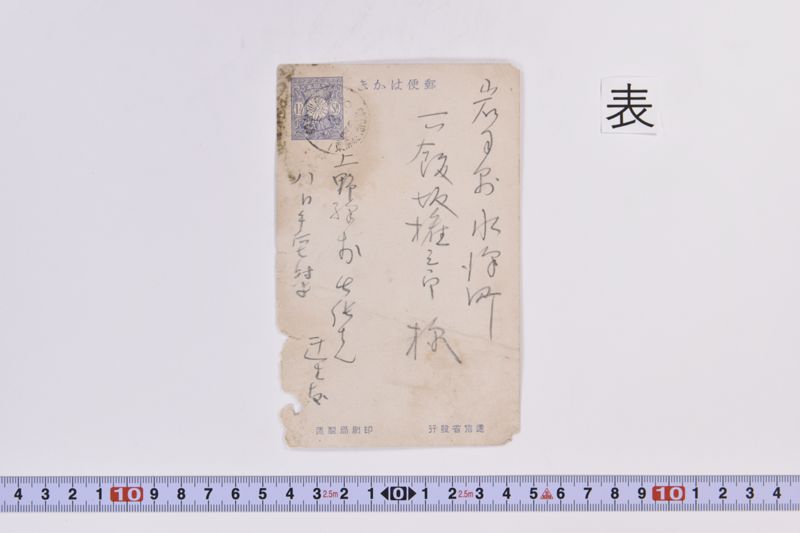 郵便はかき
岩手縣水澤町
飯坂権三郎 様
上野驛前出張先
八日午后七時
遞信省發行
印刷局製造
表
4 3 2 1 10 9 8 7 6 5 4 3 2.5m 2 1 0 1 2 2.5m 3 4 5 6 7 8 9 10 1 2 3 4